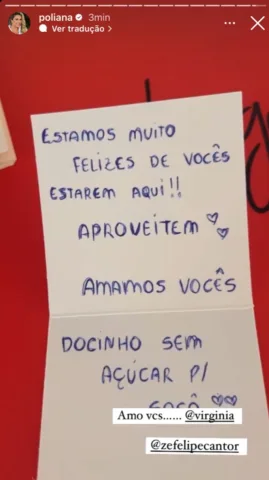 poliana 3min
Ver tradução >
ESTAMOS MUITO
FELIZES DE VOCÊS
ESTAREM AQUI!!
APROVEITEM
AMAMOS VOCÊS
DOCINHO SEM
AÇÚCAR P/
Amo vcs...... @virginia
@zefelipecantor